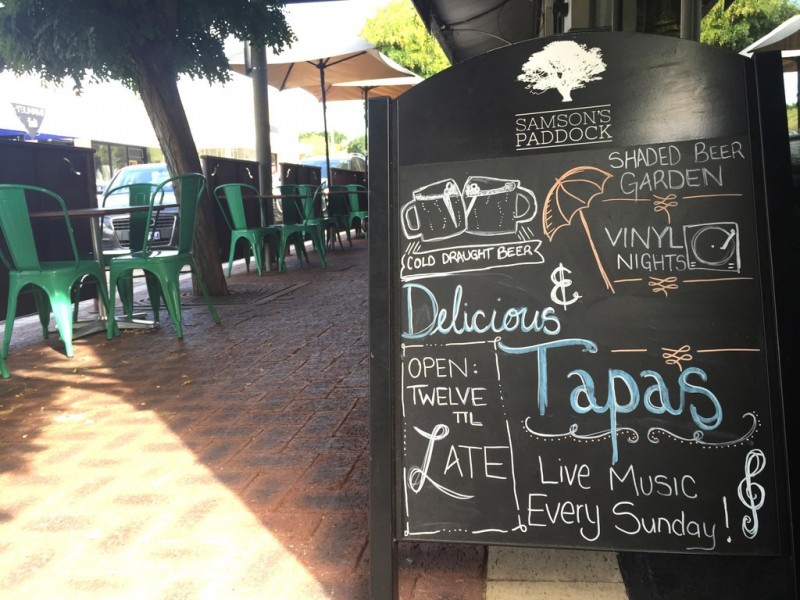 SAMSON'S
PADDOCK
SHADED BEER
GARDEN
COLD DRAUGHT BEER
VINYL
NIGHTS
&
Delicious
Tapas
OPEN:
TWELVE
TIL
LATE
LIVE MUSIC
EVERY SUNDAY!